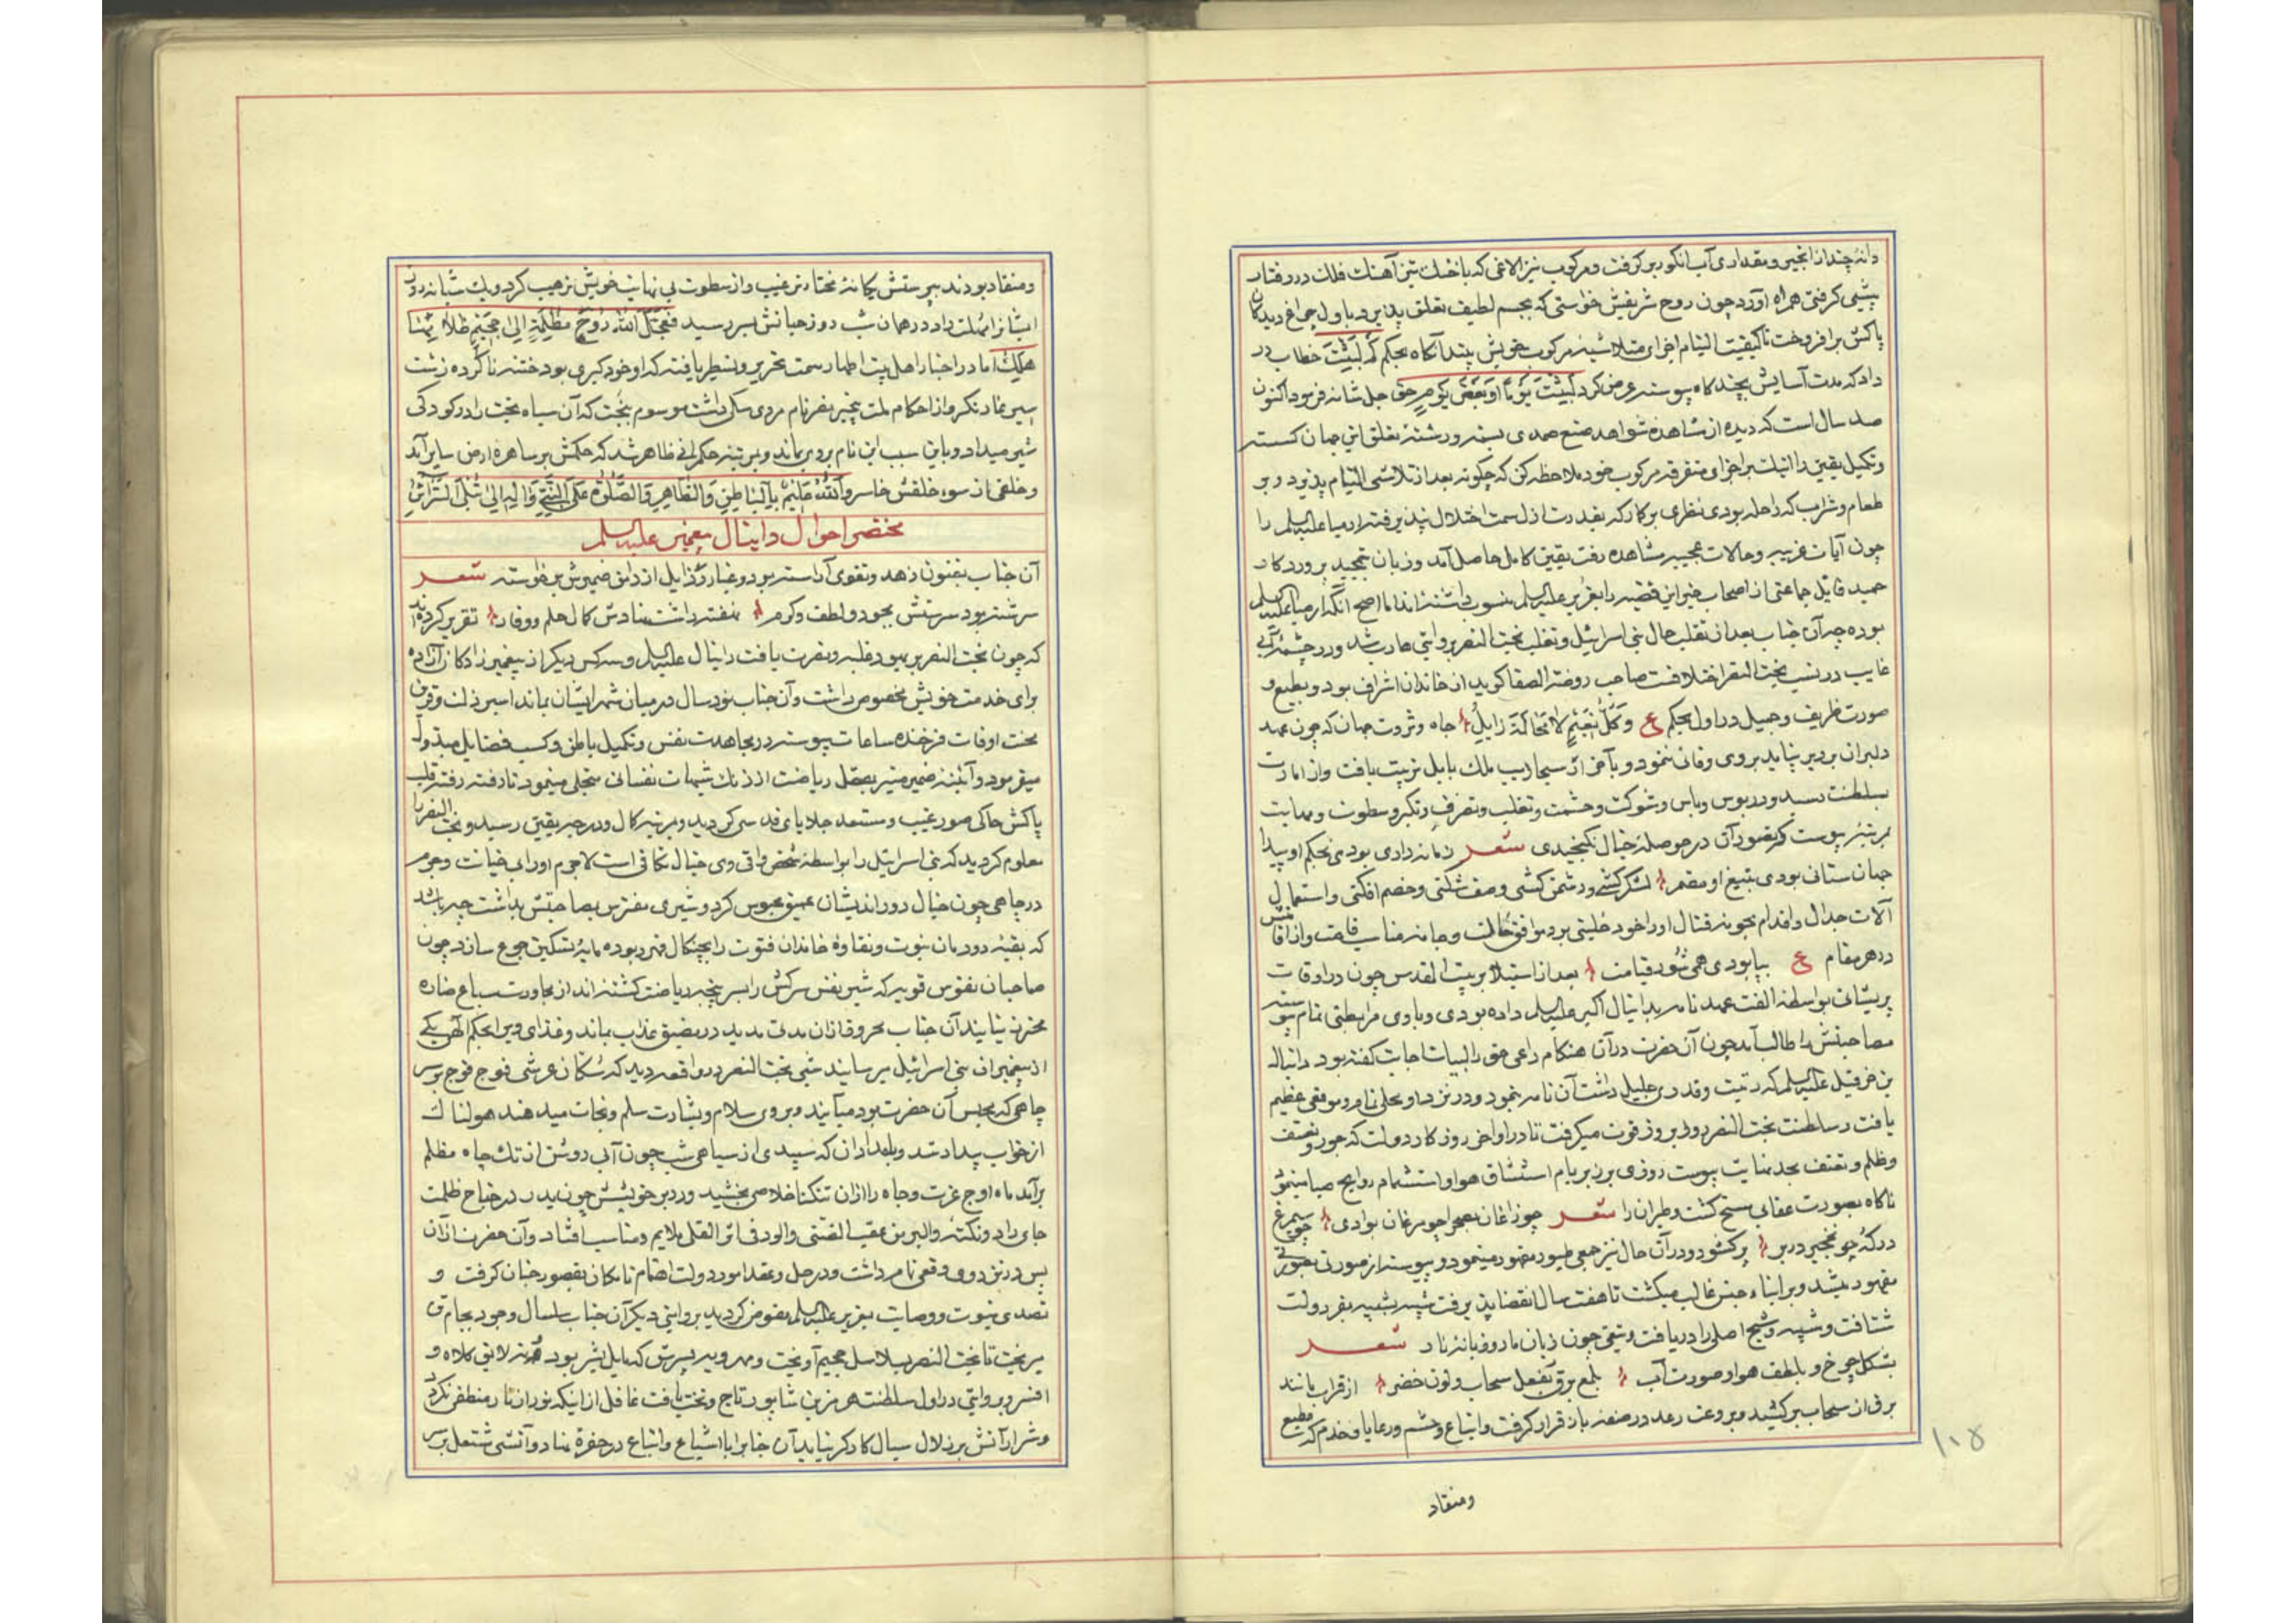 دانهٔ چند از انجیر و مقداری آب انگور بر گرفت و مرکوب نیز الاغی که با خنک تیز آهنک فلک در رفتار
پیشی کرفتی همراه آورد چون روح شریفش خواستی که بجسم لطیف تعلق پذیرد باول چراغ دیدکان
پاکش برافروخت تا کیفیت التیام اجزای متلاشیه مرکوب خویش بیند آنکاه بحکم کَم لَبِثْتَ خطاب در
داد که مدت آسایش بچند کاه پیوسته عرض کرد لَبِثْتُ یَوْماً اَوْ بَعْضَ یَوْمٍ حق جل شانه فرمود اکنون
صد سال است که دیده از مشاهده شواهد صنع صمدی بسته و رشتهٔ تعلق این جهان کسسته
وتکمیل یقین را البات بر اجزای متفرقه مرکوب خود ملاحظه کن که چکونه بعد از تلاشی التیام پذیرد و بر
طعام و شراب که راحله بودی نظری برکار که بقدرت ازل سمت اختلال نپذیرفته ارمیا علیه السلم را
چون آیات غریبه و حالات عجیبه مشاهده رفت یقین کامل حاصل آمد و زبان بتمجید پروردکار
حمید قایل جماعتی از اصحاب خبر این قضیه را بعزیر علیه السلم منسوب داشته‌اند اما اصح آنکه ارمیا علیه السلم
بوده چه آن جناب بعد از تقلب حال بنی اسرائیل و تغلب بخت النصر بروایتی هارب شد و در چشمهٔ آبی
غایب در نسب بخت النصر اختلافست صاحب روضة الصفا کوید از خاندان اشراف بود و بطبع و
صورت ظریف و جمیل در اول بحکم ع وَکُلُّ نَعِیْمٍ لَا مَحَالَةَ زَایِلُ جاه و ثروت جهان که چون عهد
دلبران بر دیر نپاید بروی وفائی ننمود و بآخر از سنجاریب ملک بابل تربیت یافت و از امارت
بسلطنت رسید و در بوس و باس و شوکت و حشمت و تغلب و تصرف و تکبر و سطوت و مهابت
بمرتبهٔ پیوست که تصور آن در حوصلهٔ خیال نکنجیدی شعر زمانه رادی بودی بحکم او پیدا
جهان ستانی بودی بتیغ او مضمر لشکر کشی و دشمن کشی و صف شکنی و خصم افکنی و استعمال
آلات جدال و اقدام بجوبه قتال او را خود خلیتی بود موافق حالت و جامهٔ مناسب قامت و از اقامتش
در هر مقام ع بپا بودی همی شور قیامت بعد از استیلا بر بیت المقدس چون در اوقات
پریشانی بواسطهٔ الفت عهد نامه بدانیال اکبر علیه السلم داده بودی و با وی مرابطتی تمام پیوسته
مصاحبتش را طالب آمد چون آن حضرت در آن هنکام داعی حق را لبیک اجابت کفته بود دانیال
بن حزقیل علیه السلم که رتبت و قدری جلیل داشت آن نامه بنمود و در نزد او محلی تام و موقعی عظیم
یافت سلطنت بخت النصر روز بروز قوت میکرفت تا در اواخر روزکار دولت که جور و تعسف
وظلم و تعنف بحد نهایت پیوست روزی برین بر بام استنشاق هوا و استشمام روایح صبا مینمود
ناکاه بصورت عقابی مسخ کشت و طیران را شعر چو زاغان بصحرا چو مرغان بوادی چو سیمرغ
در که چو نخجیر در بر پر کشود و در آن حال نیز جمعی طیور مقهور مینمود و پیوسته از صورتی بصورتی
مقهور میشد و بر ابناء جنس غالب میکشت تا هفت سال انقضا پذیرفت شبیه بشبیه بفر دولت
شتافت و شبه و شبح اصلی را دریافت و تیغی چون زبان مار و زبانهٔ نار شعر
بشکل چرخ و بلطف هوا و صورت آب بلمع برق و بفعل سحاب و لون خضر از قراب مانند
برق از سحاب بر کشید و بر وعت رعد در صفهٔ بار قرار کرفت و اتباع و حشم و رعایا و خدم که مطیع
ومنقاد
۱۰۵
ومنقاد بودند بپرستش یکانهٔ مختار ترغیب و از سطوت بی نهایت خویش ترهیب کرد و یک شبانه روز
ایشانرا مهلت داد در همان شب روز حیاتش بسر رسید فَعَجَّلَ اللّٰهُ رُوحَ مُظْلِمَةٍ اِلیٰ جَحِیْمٍ
هلک اما در اخبار اهل بیت اطهار سمت تحریر و تسطیر یافته که او خود کبری بود ختنه ناکرده زشت
سیر نماد نکر و از احکام ملت بیخبر بفرنام مردی سکی داشت موسوم ببخت که آن سیاه بخت را در کودکی
شیر میداد و باین سبب این نام بر وی بماند و بمرتبهٔ حکمرانی ظاهر شد که حکمش بر ساهرهٔ ارض سایر آمد
وخلقی از سوء خلقش خاسر وَاللّٰهُ عَلِیْمٌ بِالْبَاطِنِ وَالظَّاهِرِ وَالصَّلوٰةُ عَلَی النَّبِیِّ وَاٰلِهِ اِلیٰ
مختصر احوال دانیال پیغمبر علیه السلم
آن جناب بفنون زهد و تقوی آراسته بود و غبار رذایل از دامن ضمیرش برخواسته شعر
سرشته بود سرشتش بجود و لطف و کرم نهفته داشت نهادش کمال حلم و وقار تقریر کرده‌اند
که چون بخت النصر بر یهود غلبه و نصرت یافت دانیال علیه السلم و سه کس دیکر از پیغمبر زادکان آزاده
برای خدمت خویش مخصوص داشت و آن جناب نود سال در میان شهر ایشان بماند اسیر ذلت و قرین
محنت اوقات فرخنده ساعات پیوسته در مجاهدت نفس و تکمیل باطن و کسب فضایل مبذول
میفرمود و آئینهٔ ضمیر منیر بصقل ریاضت از زنک شبهات نفسانی متجلی مینمود تا رفته رفته قلب
پاکش حاکی صور غیب و مستعد جلایای قدسی کردید و بمرتبهٔ کمال و درجهٔ یقین رسید و بخت النصر را
معلوم کردید که بنی اسرائیل را بواسطهٔ شخص واقی وی خیال تکافی است لاجرم او را بی خیانت و جرم
در چاهی چون خیال دور اندیشان عمیق محبوس کرد و شیری مفترس بمصاحبتش بداشت چه باشد
که بقیهٔ دودمان نبوت و نقاوهٔ خاندان فتوت را بچنکال قهر ربوده مایهٔ تسکین جوع سازد چون
صاحبان نفوس قویه که شیر نفس سرکش را بسر پنجهٔ ریاضت کشته‌اند از مجاورت سباع ضاره
محترز نیایند آن جناب محروقازان مدتی مدید در مضیق عذاب بماند و غذای ویرا بحکم الهی یکی
از پیغمبران بنی اسرائیل میرسانید شبی بخت النصر در واقعه دید که سکان عرشی فوج فوج بر سر
چاهی که محبس آن حضرت بود میآیند و بر وی سلام و بشارت سلم و نجات میدهند هولناک
از خواب بیدار شد و بامدادان که سپیدی از سیاهی شب چون آبی روشن از تک چاه مظلم
برآمد ماه اوج عزت و جاه را ازان تنکنا خلاصی بخشید و در بر خویشش چون بدر در جناح ظلمت
جای داد و نکتهٔ والبر من عقب الفتنی والود فی اثر القلی ملایم و مناسب افتاد و آن حضرت ازان
پس در نزد وی وقعی تام داشت و در حل و عقد امور دولت اهتمام تا مکان بقصور جنان کرفت و
تصدی نبوت و وصایت بعزیر علیه السلم مفوض کردید بروایتی دیکر آن جناب سلسال وجود بجام تن
میریخت تا بخت النصر بسلاسل جحیم آویخت و مهرویه پسرش که مایل بشر بود نه لایق کلاه و
افسر و بروایتی در اول سلطنت هرمز بن شاپور تاج و تخت یافت غافل از اینکه نوران نار منطفی نکردد
وشرار آتش بر زلال سیال کارکر نیاید آن جنابرا با اشیاع و اتباع در حفرهٔ نهاد و آتشی مشتعل بر سر